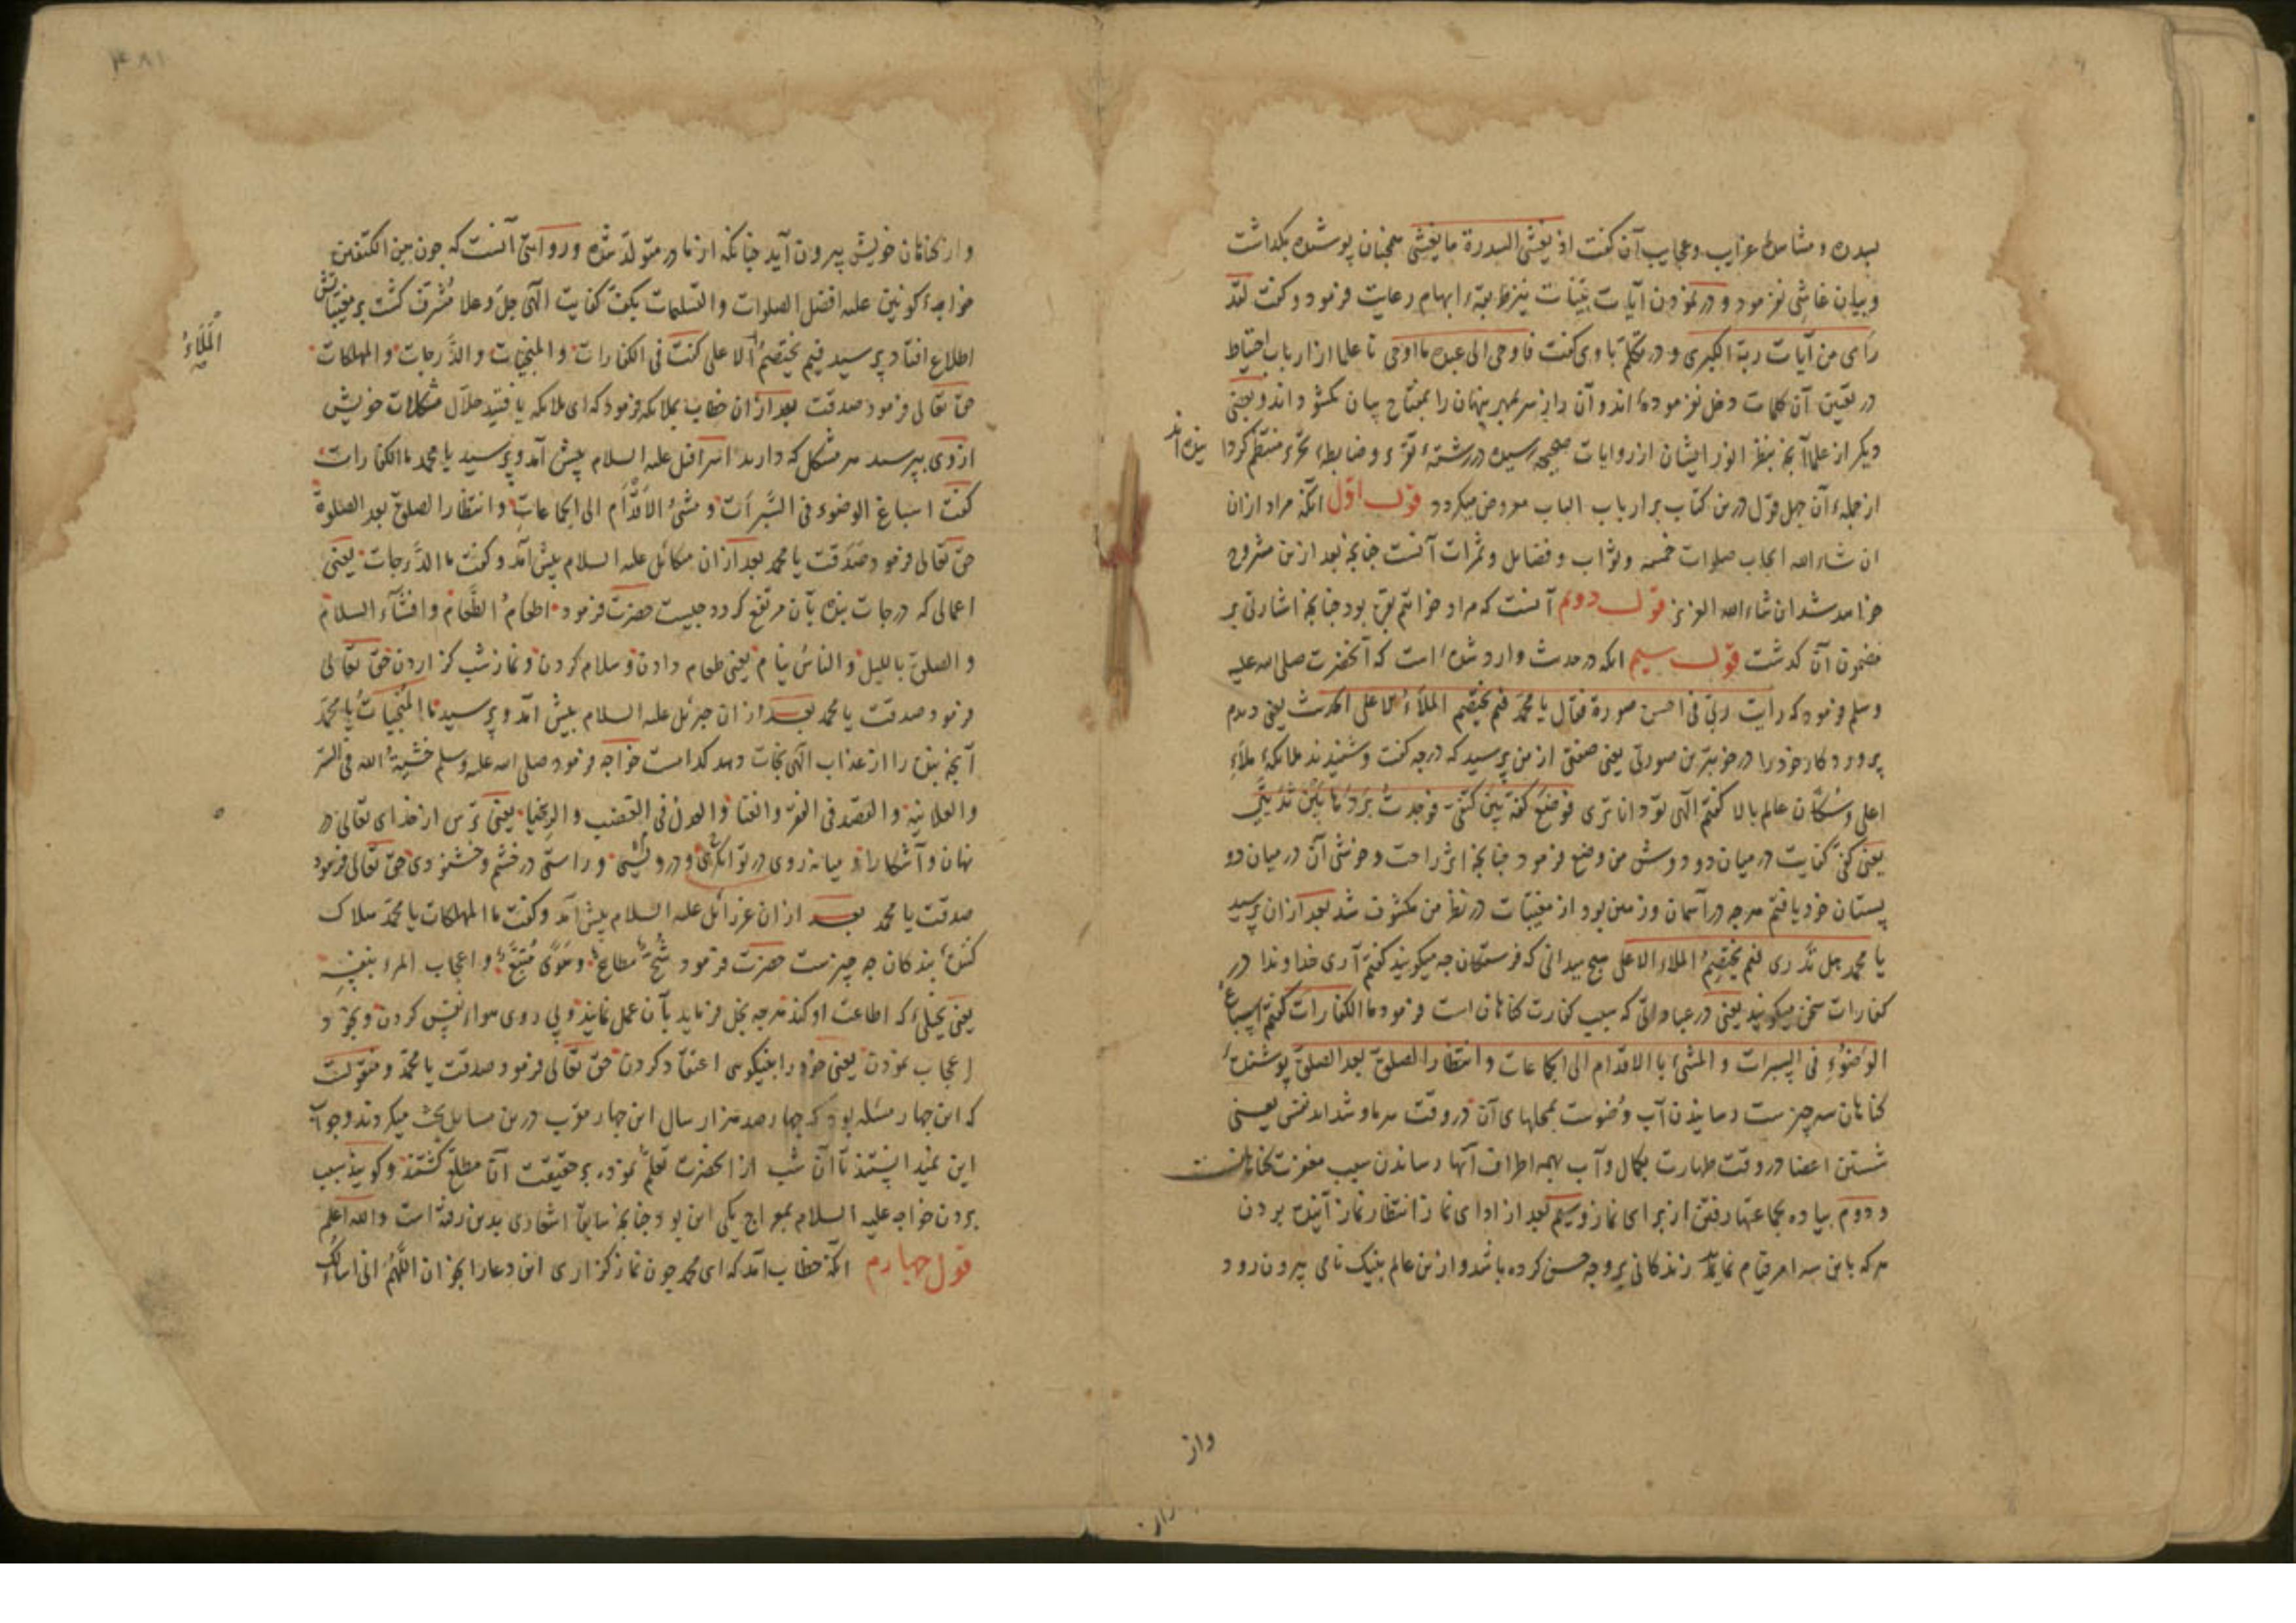 بسدره و مشاهدهٔ غرایب و عجایب آن کفت اذ یغشی السدرة ما یغشی همچنان پوشیده بکذاشت
و بیان غاشی نفرمود و در نمودن آیات بینات نیز طریقهٔ ابهام رعایت فرمود و کفت لقد
رای من آیات ربه الکبری و در تکلم با وی کفت فاوحی الی عبده ما اوحی تا علما از ارباب احتیاط
در تعیین آن کلمات دخل نفرموده اند و آن راز سر بمهر پنهان را بمفتاح بیان نکشوده اند و بعضی
دیکر از علما آنچه بنظر انور ایشان از روایات صحیحه رسیده در رشتهٔ تقریر و ضابطهٔ تحریر منتظم کردا
نیده اند
از جملهٔ آن چهل قول درین کتاب بر ارباب الباب معروض میکردد قول اول آنکه مراد ازان
ان شاء الله ایجاب صلوات خمسه و ثواب و فضایل و ثمرات آنست چنانچه بعد ازین مشروح
خواهد شد ان شاء الله العزیز قول دوم آنست که مراد خواتیم بقره بود چنانچه اشارتی بر
مضمون آن کذشت قول سیم آنکه در حدیث وارد شده است که آنحضرت صلی الله علیه
وسلم فرمود که رایت ربی فی احسن صورة فقال یا محمد فیم یختصم الملاء الاعلی الحدیث یعنی دیدم
پروردکار خود را در خوبترین صورتی یعنی صفتی از من پرسید که در چه کفت و شنیدند ملائکهٔ ملاء
اعلی و سکان عالم بالا کفتم الهی تو داناتری فوضع کفه بین کتفی فوجدت بردها بین ثدیی
یعنی کف کفایت در میان دو دوش من وضع فرمود چنانچه اثر راحت و خوشی آن در میان دو
پستان خود یافتم هرچه در آسمان و زمین بود از مغیبات در نظر من مکشوف شد بعد ازان پرسید
یا محمد هل تدری فیم یختصم الملاء الاعلی هیچ میدانی که فرشتکان چه میکویند کفتم آری خداوندا در
کفارات سخن میکویند یعنی در عباداتی که سبب کفارت کناهان است فرمود ما الکفارات کفتم اسباغ
الوضوء فی السبرات و المشی بالاقدام الی الجماعات و انتظار الصلوة بعد الصلوة پوشنده
کناهان سه چیزست رسانیدن آب وضوست بمحلهای آن در وقت سرما و شداید نفس یعنی
شستن اعضا در وقت طهارت بکمال و آب بهمه اطراف آنها رساندن سبب مغفرت کناهانست
و دوم پیاده بجماعتها رفتن از برای نماز و سیم بعد از ادای نماز انتظار نماز آینده بردن
هر که باین سه امر قیام نماید زندکانی بر وجه حسن کرده باشد و ازین عالم بنیک نامی بیرون رود
واز
و از کناهان خویش بیرون آید چنانکه از مادر متولد شده و روایتی آنست که چون بین الکتفین
خواجهٔ کونین علیه افضل الصلوات و التسلیمات بکف کفایت الهی جل و علا مشرف کشت بر مغیباتش
اطلاع افتاد پرسید فیم یختصم الاعلی کفت فی الکفارات و المنجیات و الدرجات و المهلکات
الملاء
حق تعالی فرمود صدقت بعد ازان خطاب بملائکه فرمود که ای ملائکه یافتید حلال مشکلات خویش
ازوی بپرسید هر مشکل که دارید اسرافیل علیه السلام پیش آمد و پرسید یا محمد ما الکفارات
کفت اسباغ الوضوء فی السبرات و مشی الاقدام الی الجماعات و انتظار الصلوة بعد الصلوة
حق تعالی فرمود صدقت یا محمد بعد ازان میکائل علیه السلام پیش آمد و کفت ما الدرجات یعنی
اعمالی که درجات بنده بآن مرتفع کردد چیست حضرت فرمود اطعام الطعام و افشاء السلام
و الصلوة باللیل و الناس نیام یعنی طعام دادن و سلام کردن و نماز شب کزاردن حق تعالی
فرمود صدقت یا محمد بعد ازان جبرئل علیه السلام پیش آمد و پرسید ما المنجیات یا محمد
آنچه بنده را از عذاب الهی نجات دهد کدامست خواجه فرمود صلی الله علیه وسلم خشیة الله فی السر
و العلانیة و القصد فی الفقر و الغنا و العدل فی الغضب و الرضا یعنی ترس از خدای تعالی در
نهان و آشکارا و میانه روی در توانکری و درویشی و راستی در خشم و خشنودی حق تعالی فرمود
صدقت یا محمد بعد ازان عزرائل علیه السلام پیش آمد و کفت ما المهلکات یا محمد هلاک
کنندهٔ بندکان چه چیزست حضرت فرمود شح مطاع و هوی متبع و اعجاب المرء بنفسه
یعنی بخیلی که اطاعت او کند هرچه بخل فرماید بآن عمل نماید و پی روی هواء نفس کردن و بخود
اعجاب نمودن یعنی خود را بنیکویی اعتقاد کردن حق تعالی فرمود صدقت یا محمد و منقولست
که این چهار مسئله بود که چهار صد هزار سال این چهار مقرب درین مسایل بحث میکردند و جواب
این نمیدانستند تا آن شب از انحضرت تعلم نموده بر حقیقت آن مطلع کشتند و کویند سبب
بردن خواجه علیه السلام بمعراج یکی این بود چنانچه سابق اشعاری بدین رفته است والله اعلم
قول چهارم آنکه خطاب آمد که ای محمد چون نماز کزاری این دعا را بخوان اللهم انی اسالک